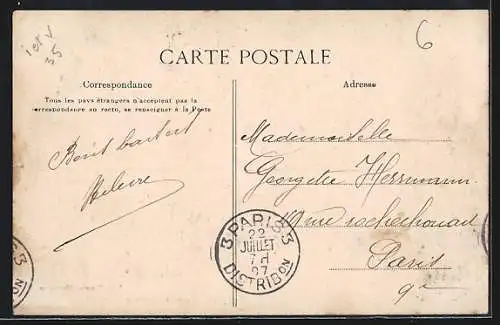 6
CARTE POSTALE
Correspondance
Tous les pays étrangers n'acceptent pas la
correspondance au recto, se renseigner à la Poste
Adresse
Mademoiselle
Georgette Herrmann
rue rochechouart
Paris
9e
Hélène
3 PARIS 3
22
JUILLET
7 H
07
DISTRIBON